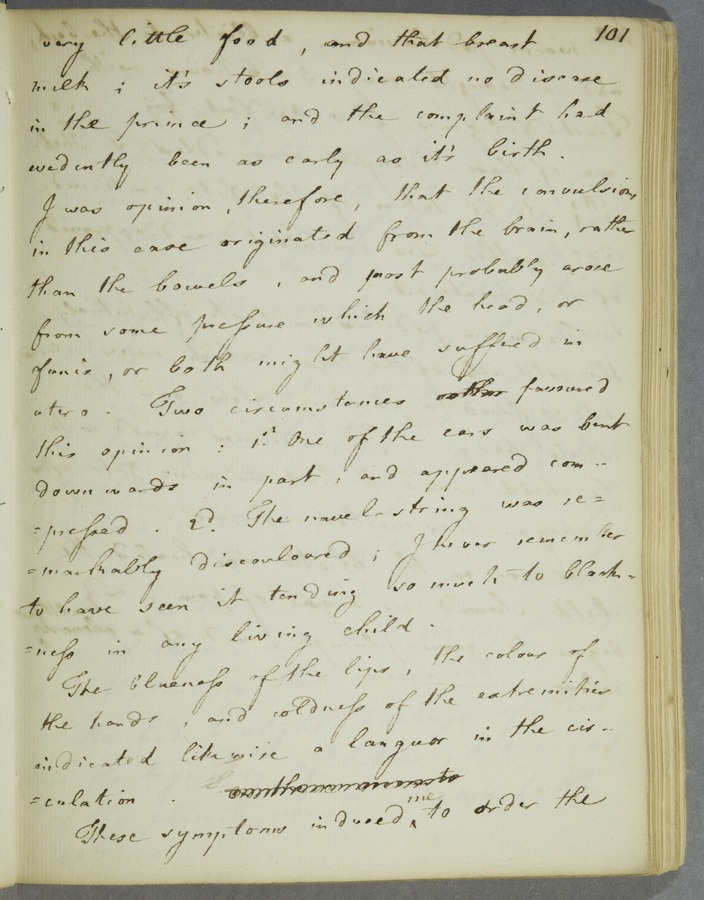 101
very little food, and that breast
milk; it's stools indicated no disease
in the primæ; and the complaint had
evidently been as early as it's birth.
I was opinion, therefore, that the convulsions
in this case originated from the brain, rather
than the bowels, and most probably arose
from some pressure which the head, or
funis, or both might have suffered in
utero. Two circumstances favoured
this opinion: 1st One of the ears was bent
downwards in part, and appeared com-
=pressed. 2d. The navel-string was re=
=markably discouloured; I never remember
to have seen it tending so much to black-
=ness in any living child.
The blueness of the lips, the colour of
the hands, and coldness of the extremities
indicated likewise a languor in the cir-
=culation.
These symptoms induced me to order the